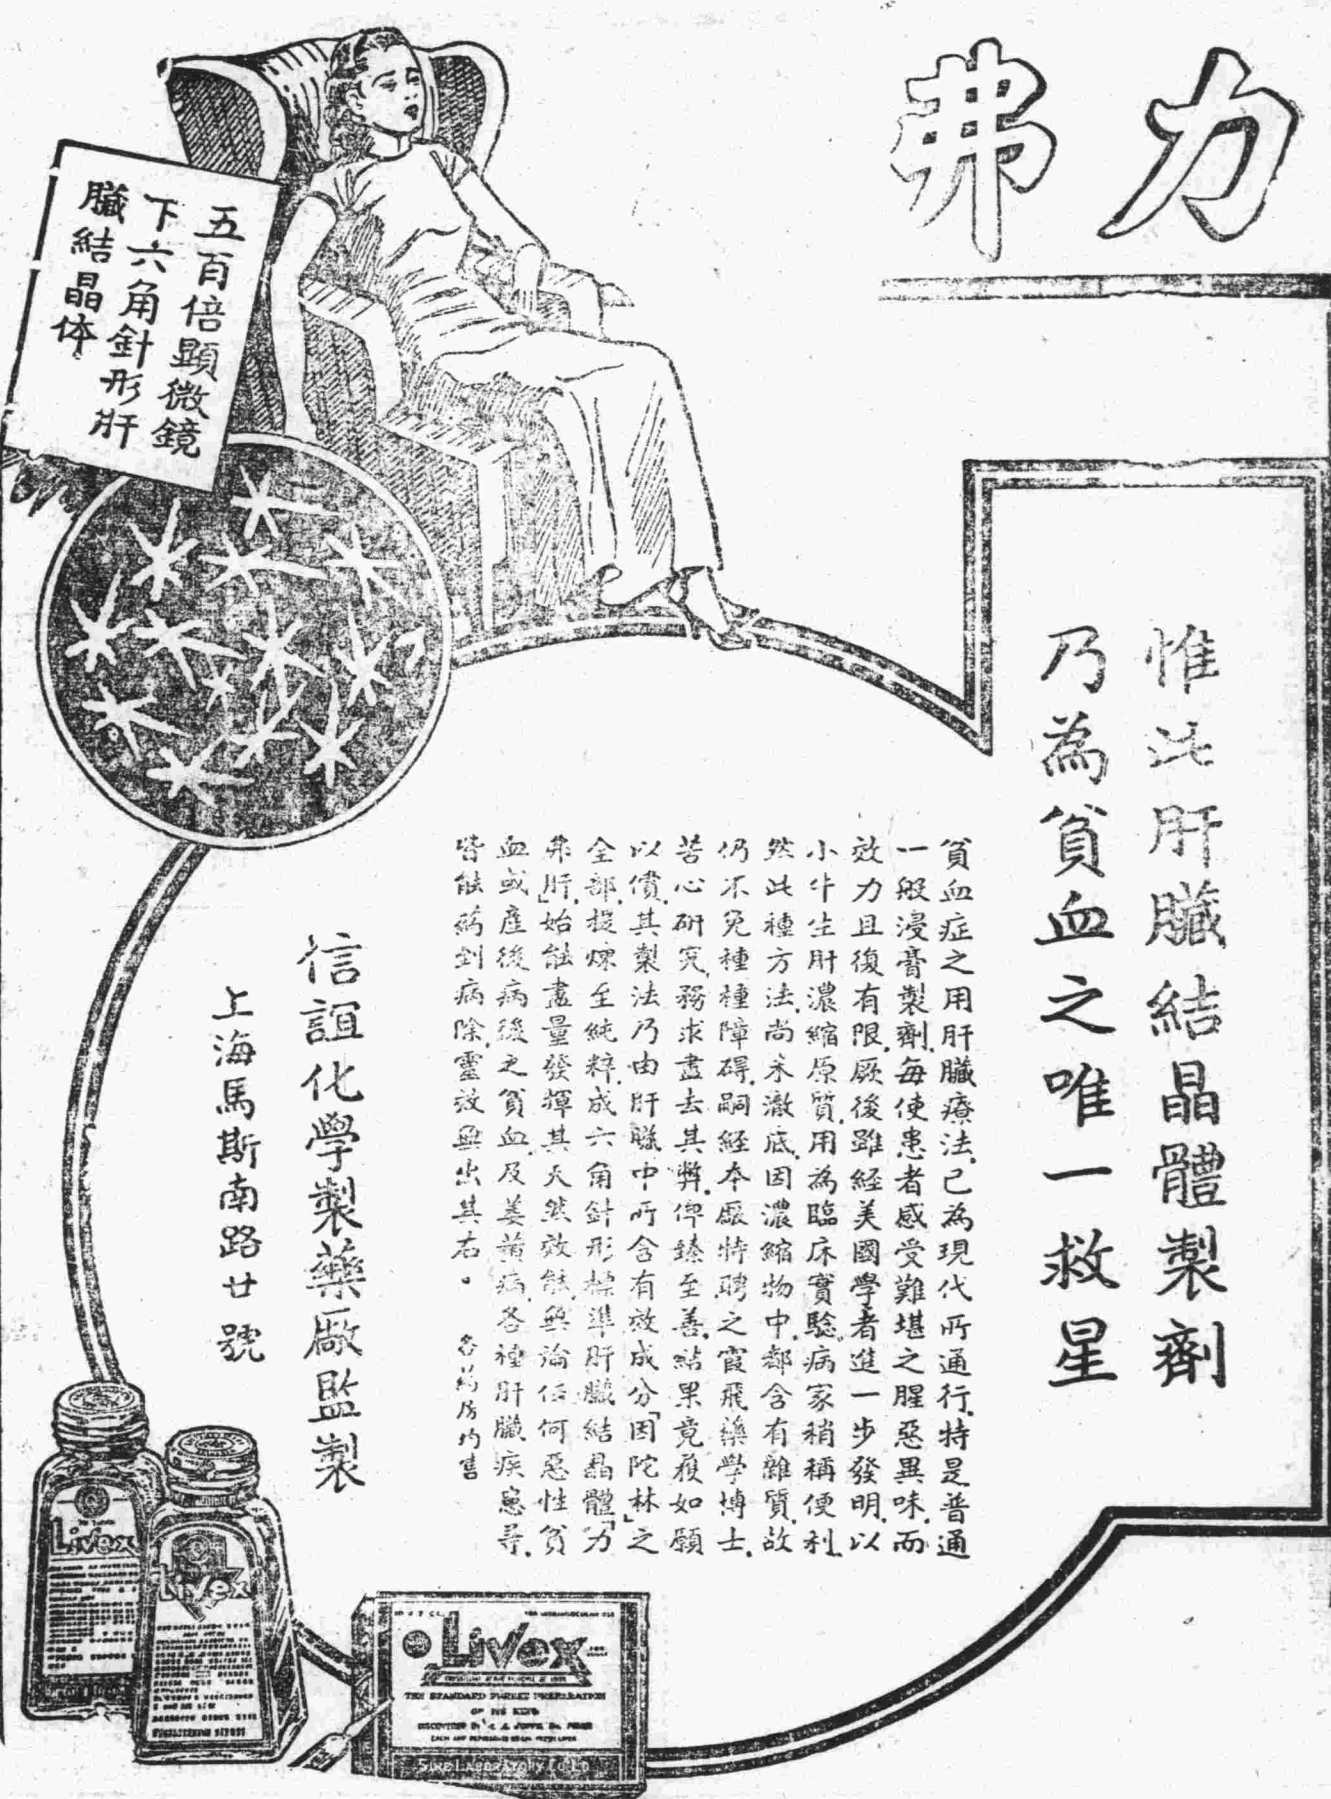 力弗
惟此肝臟結晶體製劑
乃為貧血之唯一救星
五百倍顯微鏡
下六角針形肝
臟結晶体
貧血症之用肝臟療法.已為現代所通行.特是普通
一般浸膏製劑.每使患者感受難堪之腥惡異味.而
效力且復有限.厥後雖經美國學者進一步發明.以
小牛生肝濃縮原質.用為臨床實驗.病家稍稱便利.
然此種方法.尚未澈底.因濃縮物中.都含有雜質.故
仍不免種種障碍.嗣經本廠特聘之霞飛藥學博士.
苦心研究.務求盡去其弊.俾臻至善.結果竟獲如願
以償.其製法乃由肝臟中所含有效成分「因陀林」之
全部.提煉至純粹.成六角針形標準肝臟結晶體「力
弗肝」.始能盡量發揮其天然效能.無論任何惡性貧
血或產後病後之貧血.及萎黃病.各種肝臟疾患等.
皆能藥到病除.靈效無出其右。 各药房均售
信誼化學製藥廠監製
上海馬斯南路廿號
Livex
Livex
Livex
THE STANDARD PUREST PREPARATION
OF ITS KIND
SINE LABORATORY CO LD